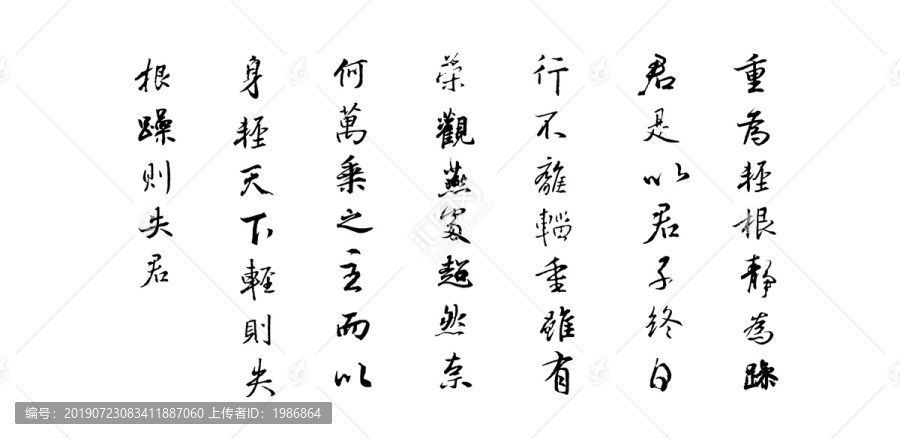 重為輕根靜為躁
君是以君子終日
行不離輜重雖有
榮觀燕處超然奈
何萬乘之主而以
身輕天下輕則失
根躁則失君
编号：20190723083411887060 上传者ID：1986864